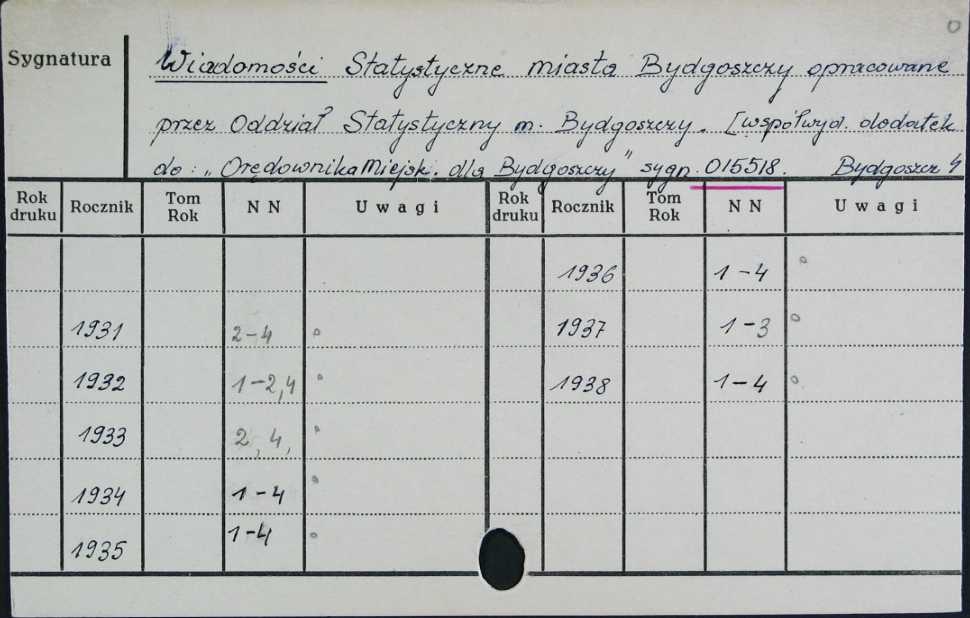 Sygnatura
Wiadomości Statystyczne miasta Bydgoszczy opracowane
przez Oddział Statystyczny m. Bydgoszczy. [współwyd. dodatek
do: „Orędownika Miejsk. dla Bydgoszczy" sygn. 015518. Bydgoszcz
Rok druku Rocznik Tom Rok N N Uwagi Rok druku Rocznik Tom Rok N N Uwagi
1936 1-4
1931 2-4 1937 1-3
1932 1-2,4 1938 1-4
1933 2, 4,
1934 1-4
1935 1-4